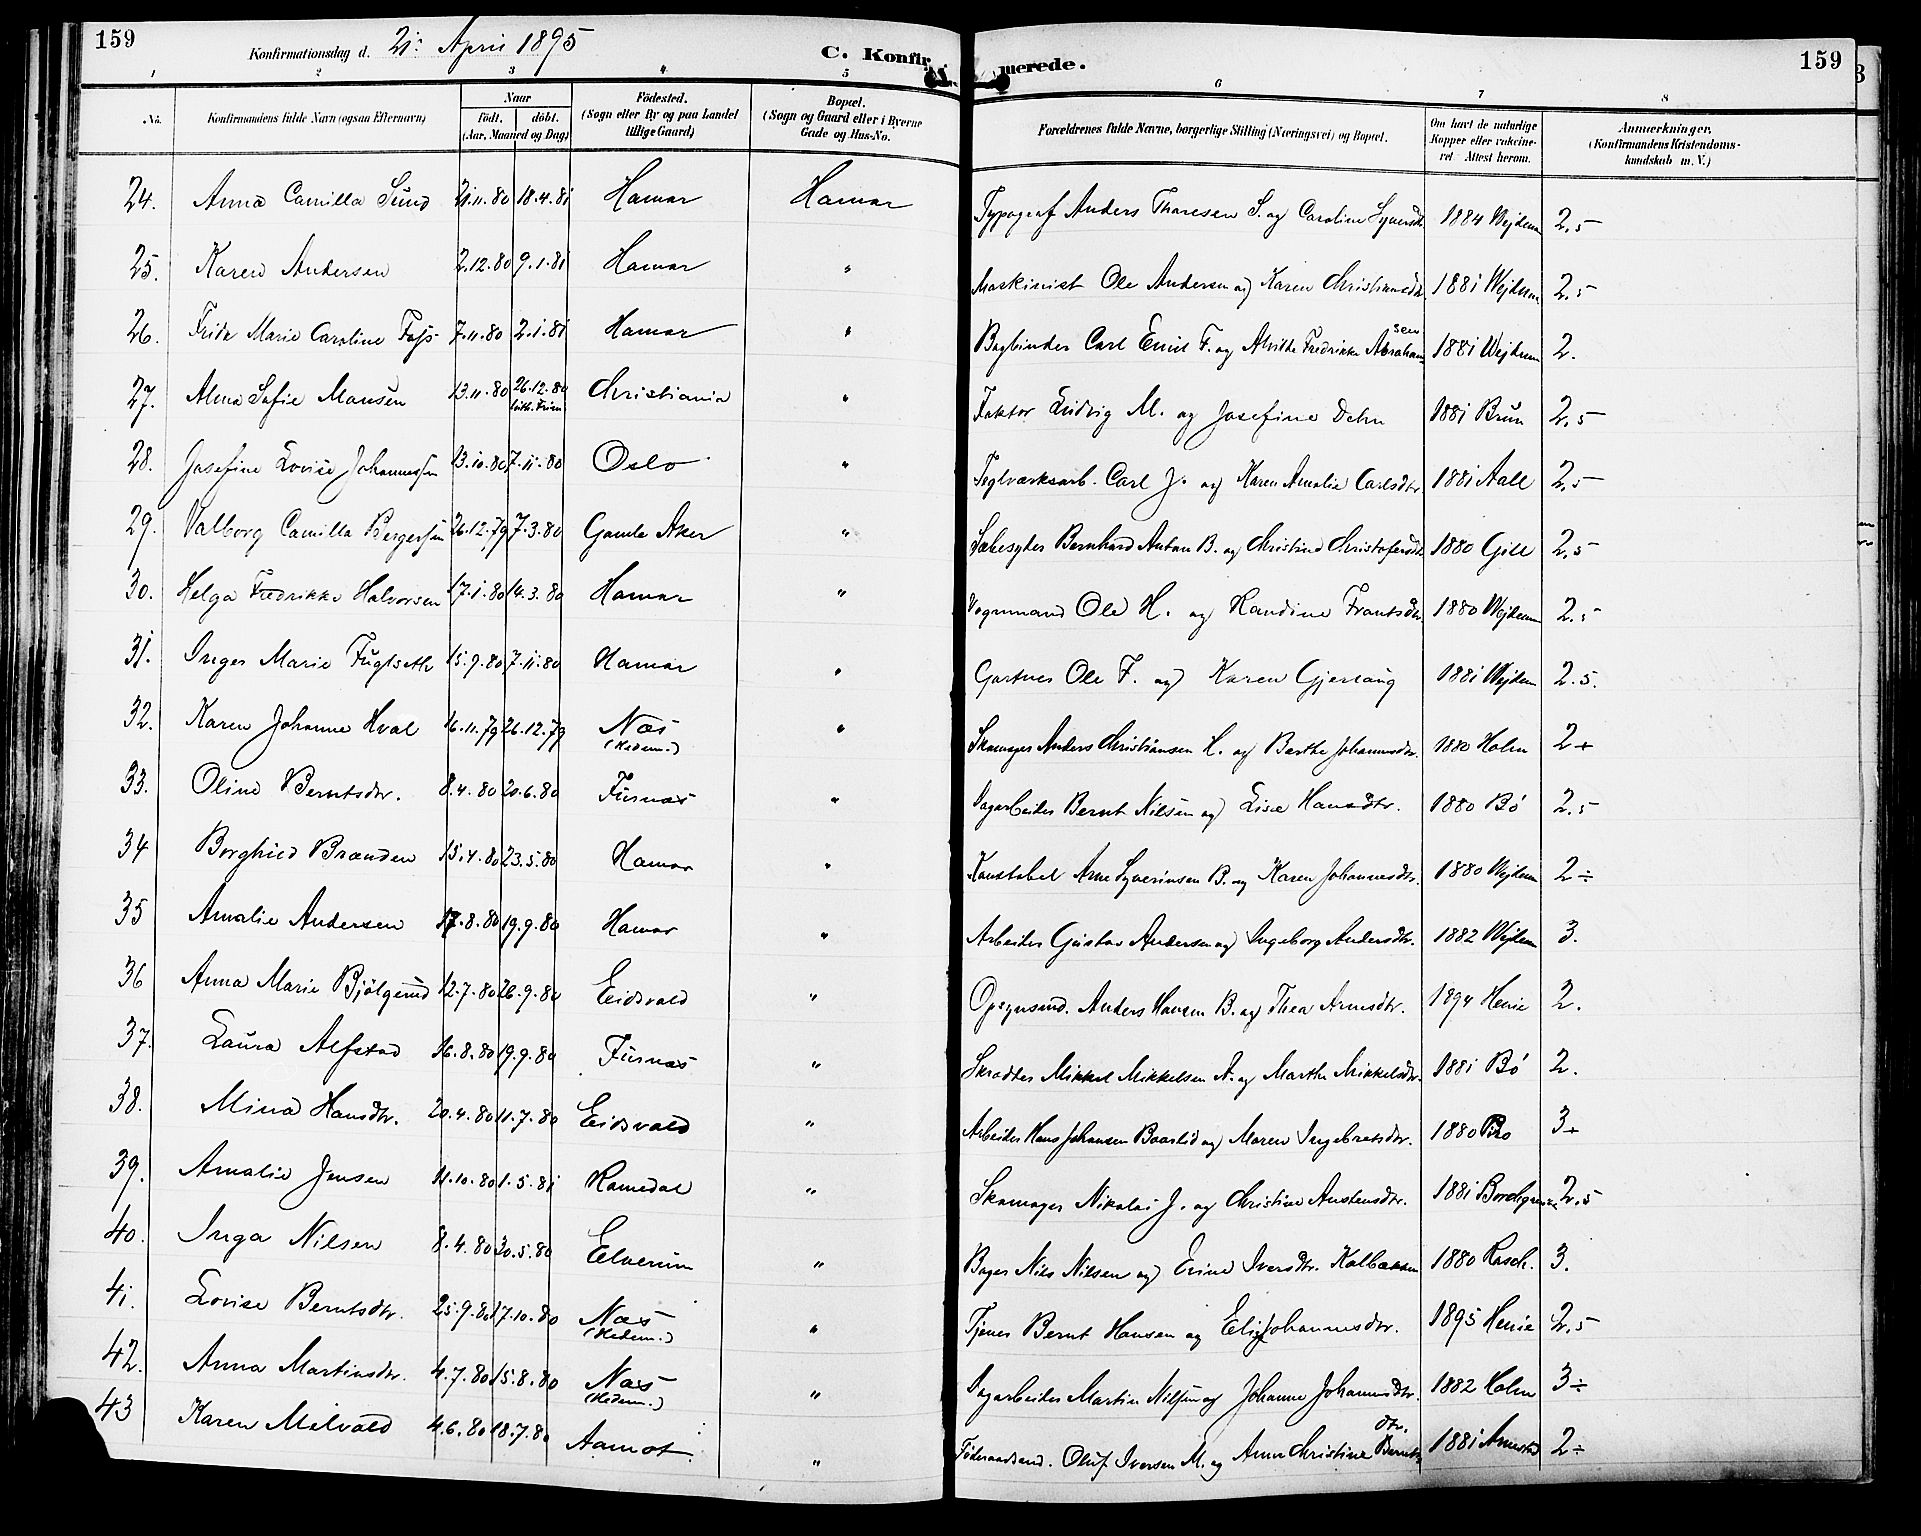 159
Konfirmationsdag d. 21. April 1895
C. Konfirmerede.
159
1 2 3 4 5 6 7 8
No.
Konfirmandens fulde Navn (ogsaa Efternavn)
Naar
födt. döbt.
(Aar, Maaned og Dag)
Födested.
(Sogn eller By og paa Landet
tillige Gaard)
Bopæl.
(Sogn og Gaard eller i Byerne
Gade og Hus-No.
Forældrenes fulde Navne, borgerlige Stilling (Næringsvei) og Bopæl.
Om havt de naturlige
Kopper eller vakcine-
ret Attest herom.
Anmærkninger.
(Konfirmandens Kristendoms-
kundskab m. V.)
24. Anna Camilla Sund 21.11.80 18.4.81 Hamar Hamar Typograf Anders Thoresen S. og Caroline Syversdtr 1884 Wejdem 2,5
25. Karen Andersen 2.12.80 9.1.81 Hamar " Maskinist Ole Andersen og Karen Christiansdtr. 1881 Wejdem 2,5
26. Frida Marie Caroline Foss 7.11.80 2.1.81 Hamar " Bogbinder Carl Emil F. og Alvilde Fredrikke Abrahamsen 1881 Wejdem 2.
27. Alma Sofie Monsen 13.11.80 26.12.80 Christiania " Faktor Ludvig M. og Josefine Dehn 1881 Brun 2,5
28. Josefine Lovise Johannessen 13.10.80 7.11.80 Oslo " Teglværksarb. Carl J. og Karen Amalie Carlsdtr. 1881 Aall 2,5
29. Valborg Camilla Bergersen 26.12.79 7.3.80 Gamle Aker " Sæbesyder Bernhard Anton B. og Christine Christofersdtr 1880 Gill 2,5
30. Helga Fredrikke Halvorsen 17.1.80 14.3.80 Hamar " Vognmand Ole H. og Handine Frantsdtr. 1880 Wejdem 2,5
31. Inger Marie Fuglseth 15.9.80 7.11.80 Hamar " Gartner Ole F. og Karen Gjerlaug 1881 Wejdem 2.5.
32. Karen Johanne Hval 16.11.79 26.12.79 Næs (Hedem.) " Skomager Anders Christiansen H. og Berthe Johannesdtr. 1880 Holm 2+
33. Oline Berntsdtr. 8.4.80 20.6.80 Furnæs " Sagarbeider Bernt Nilsen og Lise Hansdtr. 1880 Bö 2,5
34 Borghild Brænden 15.4.80 23.5.80 Hamar " Konstabel Arne Syverinsen B. og Karen Johannesdtr. 1880 Wejdem 2÷
35 Amalie Andersen 17.8.80 19.9.80 Hamar " Arbeider Gustav Andersen og Ingeborg Andersdtr. 1882 Wejdem 3.
36 Anna Marie Bjölgerud 12.7.80 26.9.80 Eidsvold " Opsynsmd. Anders Hansen B. og Thea Arnesdtr. 1894 Henie 2.
37. Laura Alfstad 16.8.80 19.9.80 Furnæs " Skrædder Mikkel Mikkelsen A. og Marthe Mikkelsdtr. 1881 Bö 2.
38. Mina Hansdtr. 20.4.80 11.7.80 Eidsvold " Arbeider Hans Johansen Baarlid og Maren Ingebretsdtr. 1880 3+
39. Amalie Jensen 11.10.80 1.5.81 Romedal " Skomager Nikolai J. og Christine Austensdtr. 1881 Borchgrevink 2,5
40. Inga Nilsen 8.4.80 30.5.80 Elverum " Bager Nils Nilsen og Erine Iversdtr. Kolbækken 1880 Rasch. 3.
41. Lovise Berntsdtr. 25.9.80 17.10.80 Næs (Hedem.) " Tjener Bernt Hansen og Elis Johannesdtr. 1895 Henie 2,5
42. Anna Martinsdtr. 4.7.80 15.8.80 Næs (Hedem.) " Sagarbeider Martin Nilsen og Johanne Johannesdtr. 1882 Holm 3÷
43 Karen Melvold 4.6.80 18.7.80 Aamot " Föderaadsmd. Oluf Iversen M. og Anne Christine Berntsdtr. 1881 2÷